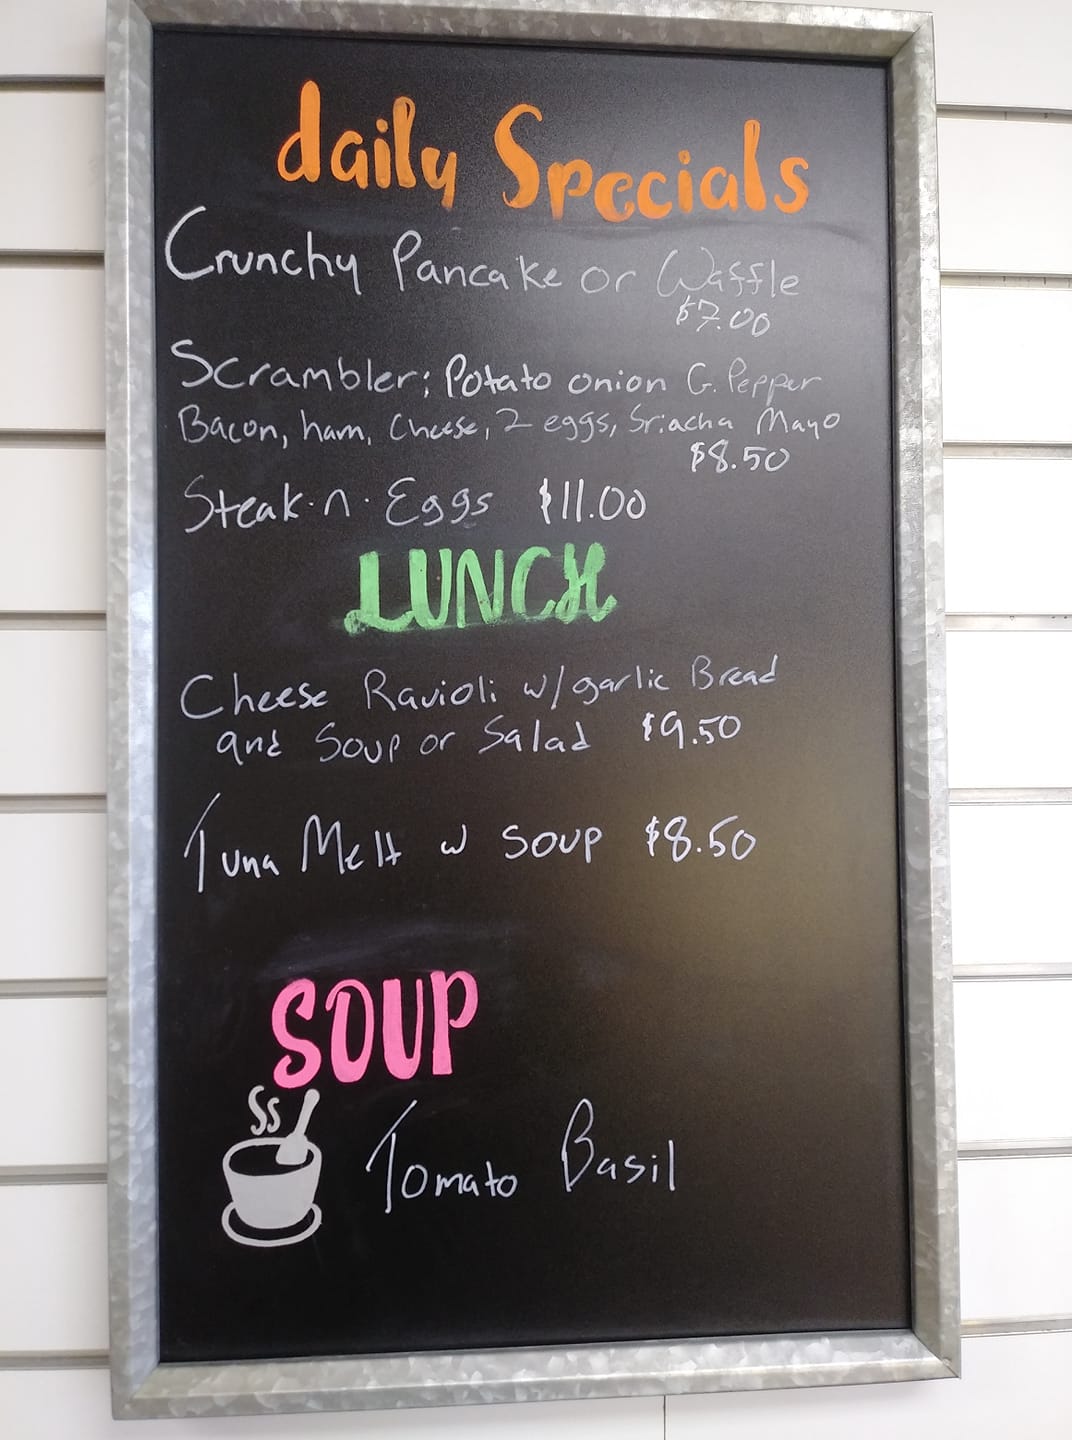 daily Specials
Crunchy Pancake or Waffle
$7.00
Scrambler; Potato onion G. Pepper
Bacon, ham, Cheese, 2 eggs, Sriacha Mayo
$8.50
Steak·n·Eggs $11.00
LUNCH
Cheese Ravioli w/garlic Bread
and Soup or Salad $9.50
Tuna Melt w soup $8.50
SOUP
Tomato Basil